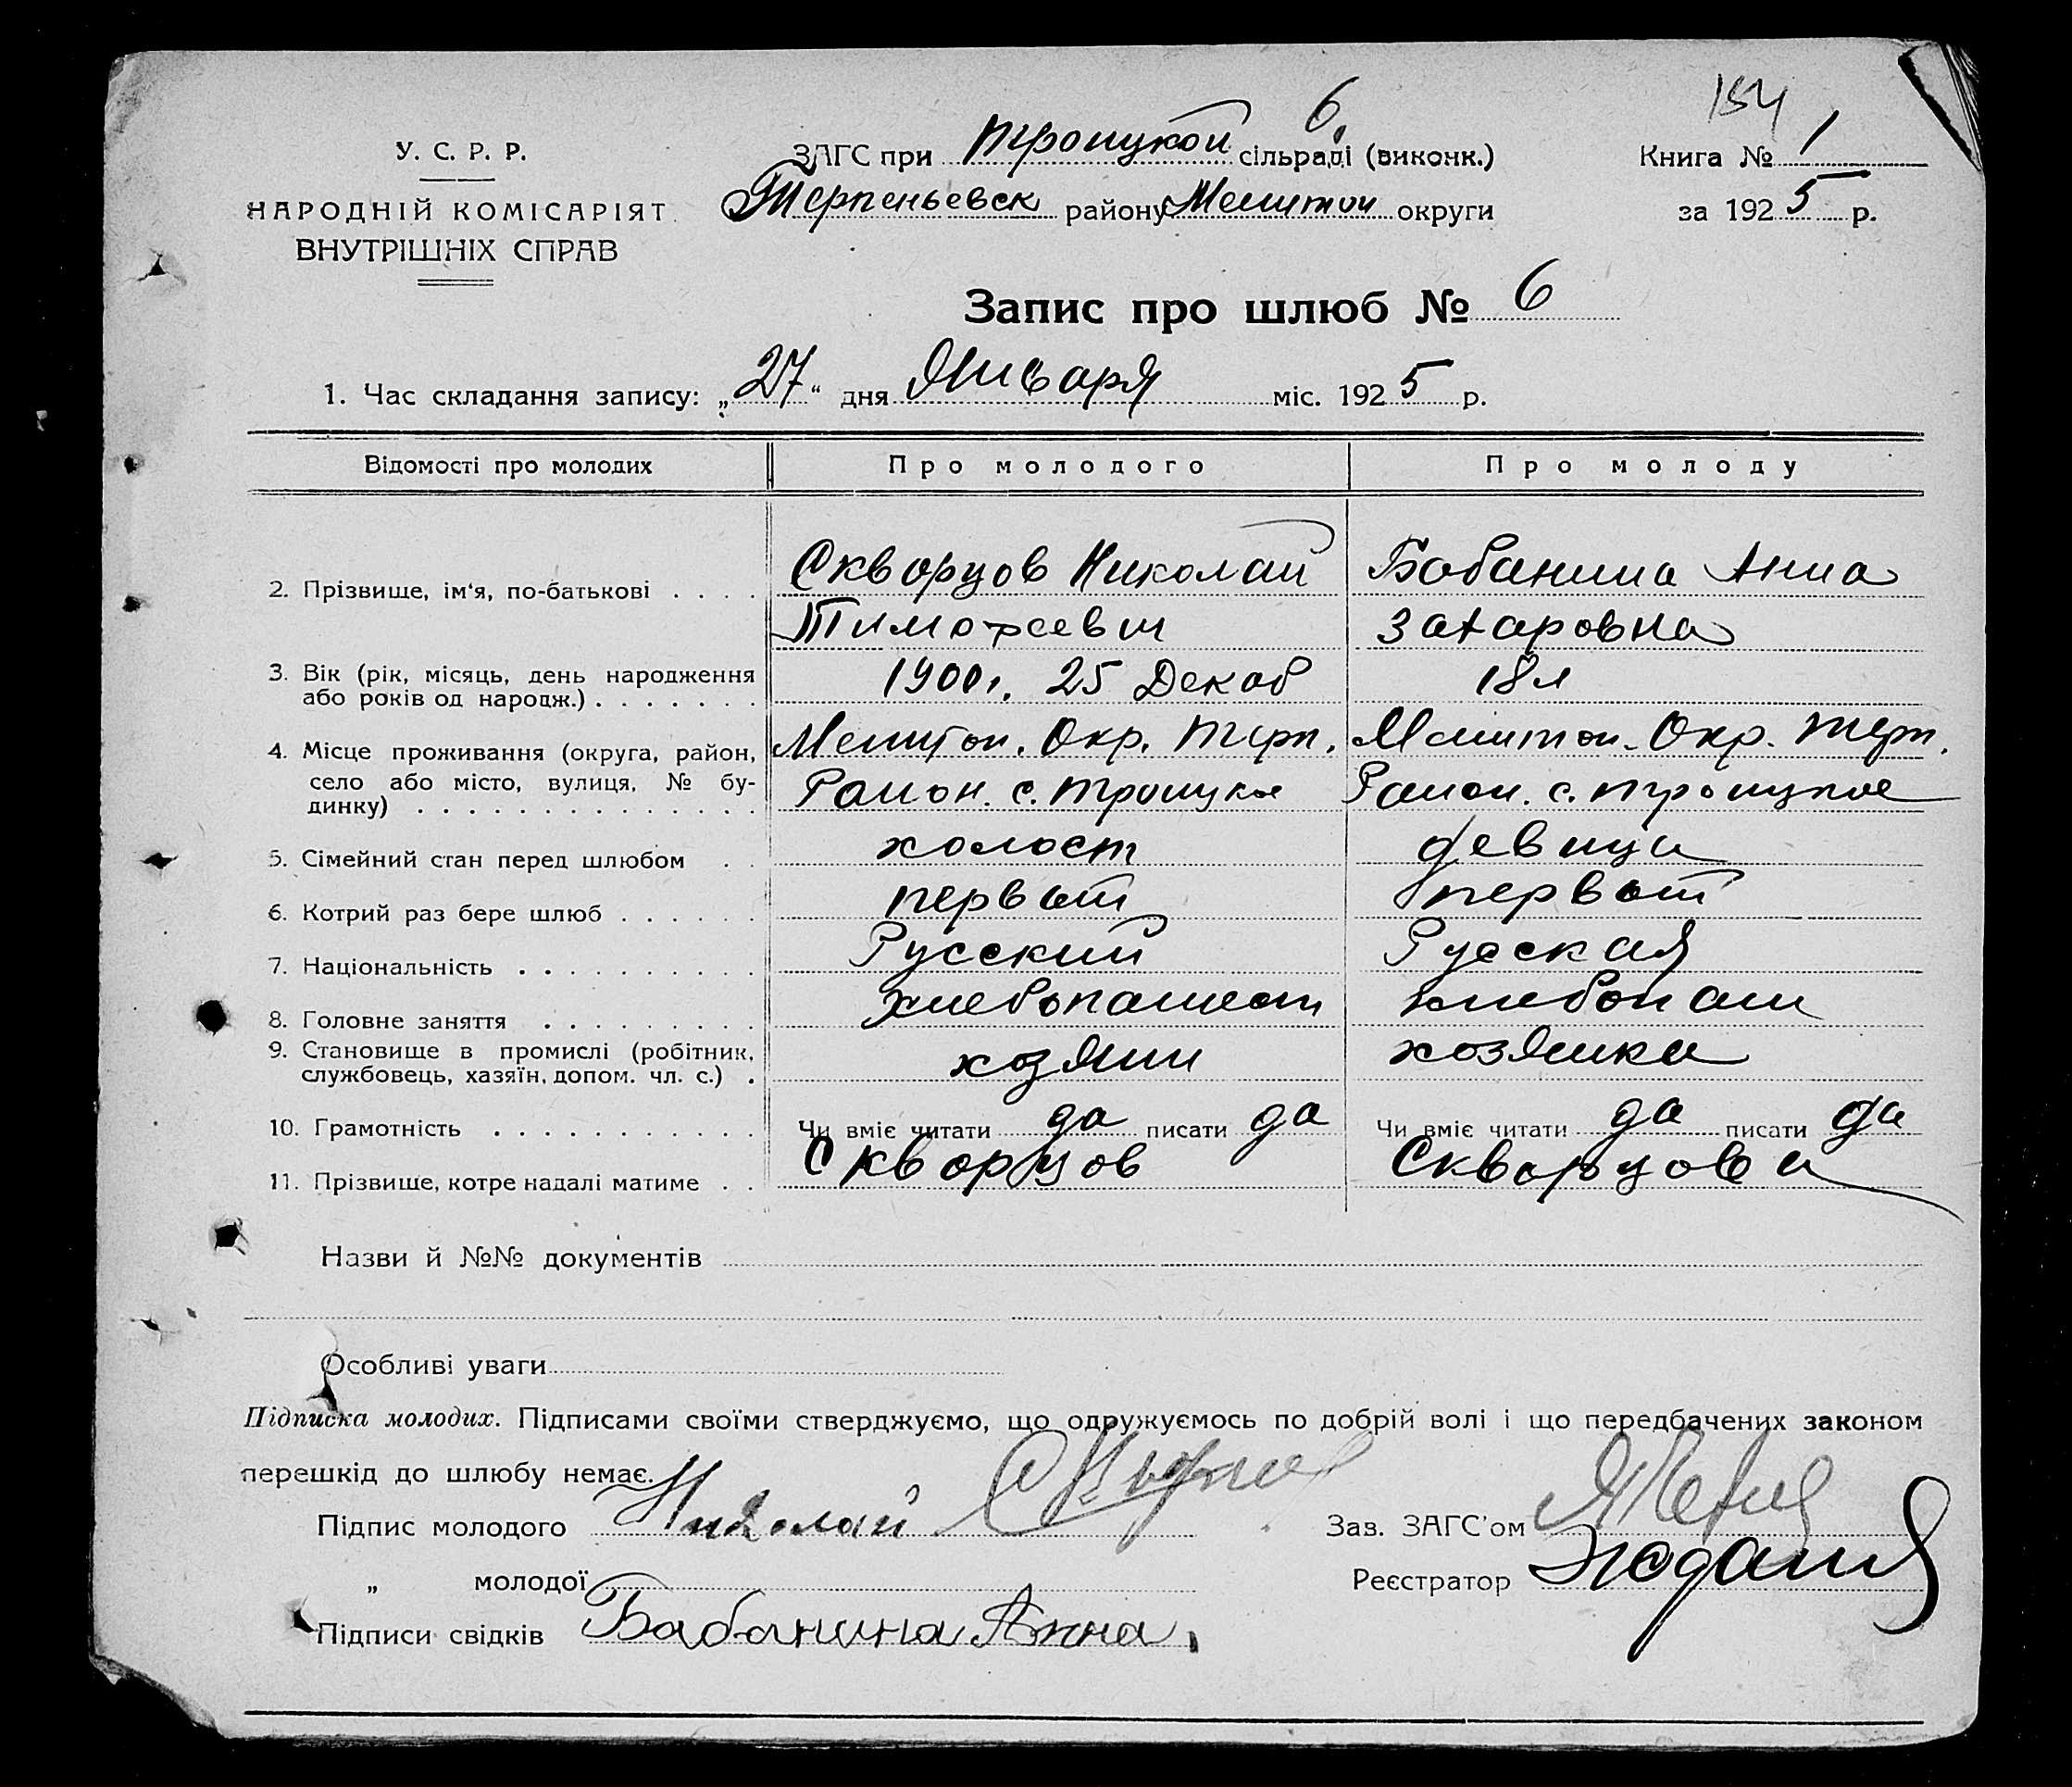 154
6
У. С. Р. Р.
ЗАГС при Троицкой сільраді (виконк.)
Книга № 1
НАРОДНІЙ КОМІСАРІЯТ
Терпеньевск району Мелитоп округи
за 1925 р.
ВНУТРІШНІХ СПРАВ
Запис про шлюб № 6
1. Час складання запису: „27“ дня Января міс. 1925 р.
Відомості про молодих
Про молодого
Про молоду
2. Прізвище, ім'я, по-батькові . . . .
Скворцов Николай
Тимофеевич
Бабанина Анна
Захаровна
3. Вік (рік, місяць, день народження
або років од народж.) . . . . . . .
1900г. 25 Декаб
18л
4. Місце проживання (округа, район,
село або місто, вулиця, № бу-
динку) . . . . . . . . . . . . . .
Мелитоп. Окр. Терп.
Район. с. Троицкое
Мелитоп. Окр. Терп.
Район. с. Троицкое
5. Сімейний стан перед шлюбом . .
холост
девица
6. Котрий раз бере шлюб . . . . . .
первый
первый
7. Національність . . . . . . . . . .
Русский
Руская
8. Головне заняття . . . . . . . . .
хлебопашест
хлебопаш
9. Становище в промислі (робітник,
службовець, хазяїн, допом. чл. с.) .
хозяин
хозяика
10. Грамотність . . . . . . . . . . .
Чи вміє читати да писати да
Чи вміє читати да писати да
11. Прізвище, котре надалі матиме . .
Скворцов
Скворцова
Назви й №№ документів
Особливі уваги
Підписка молодих. Підписами своїми стверджуємо, що одружуємось по добрій волі і що передбачених законом
перешкід до шлюбу немає.
Підпис молодого Николай
Зав. ЗАГС'ом
„ молодої
Реєстратор
Підписи свідків Бабанина Анна